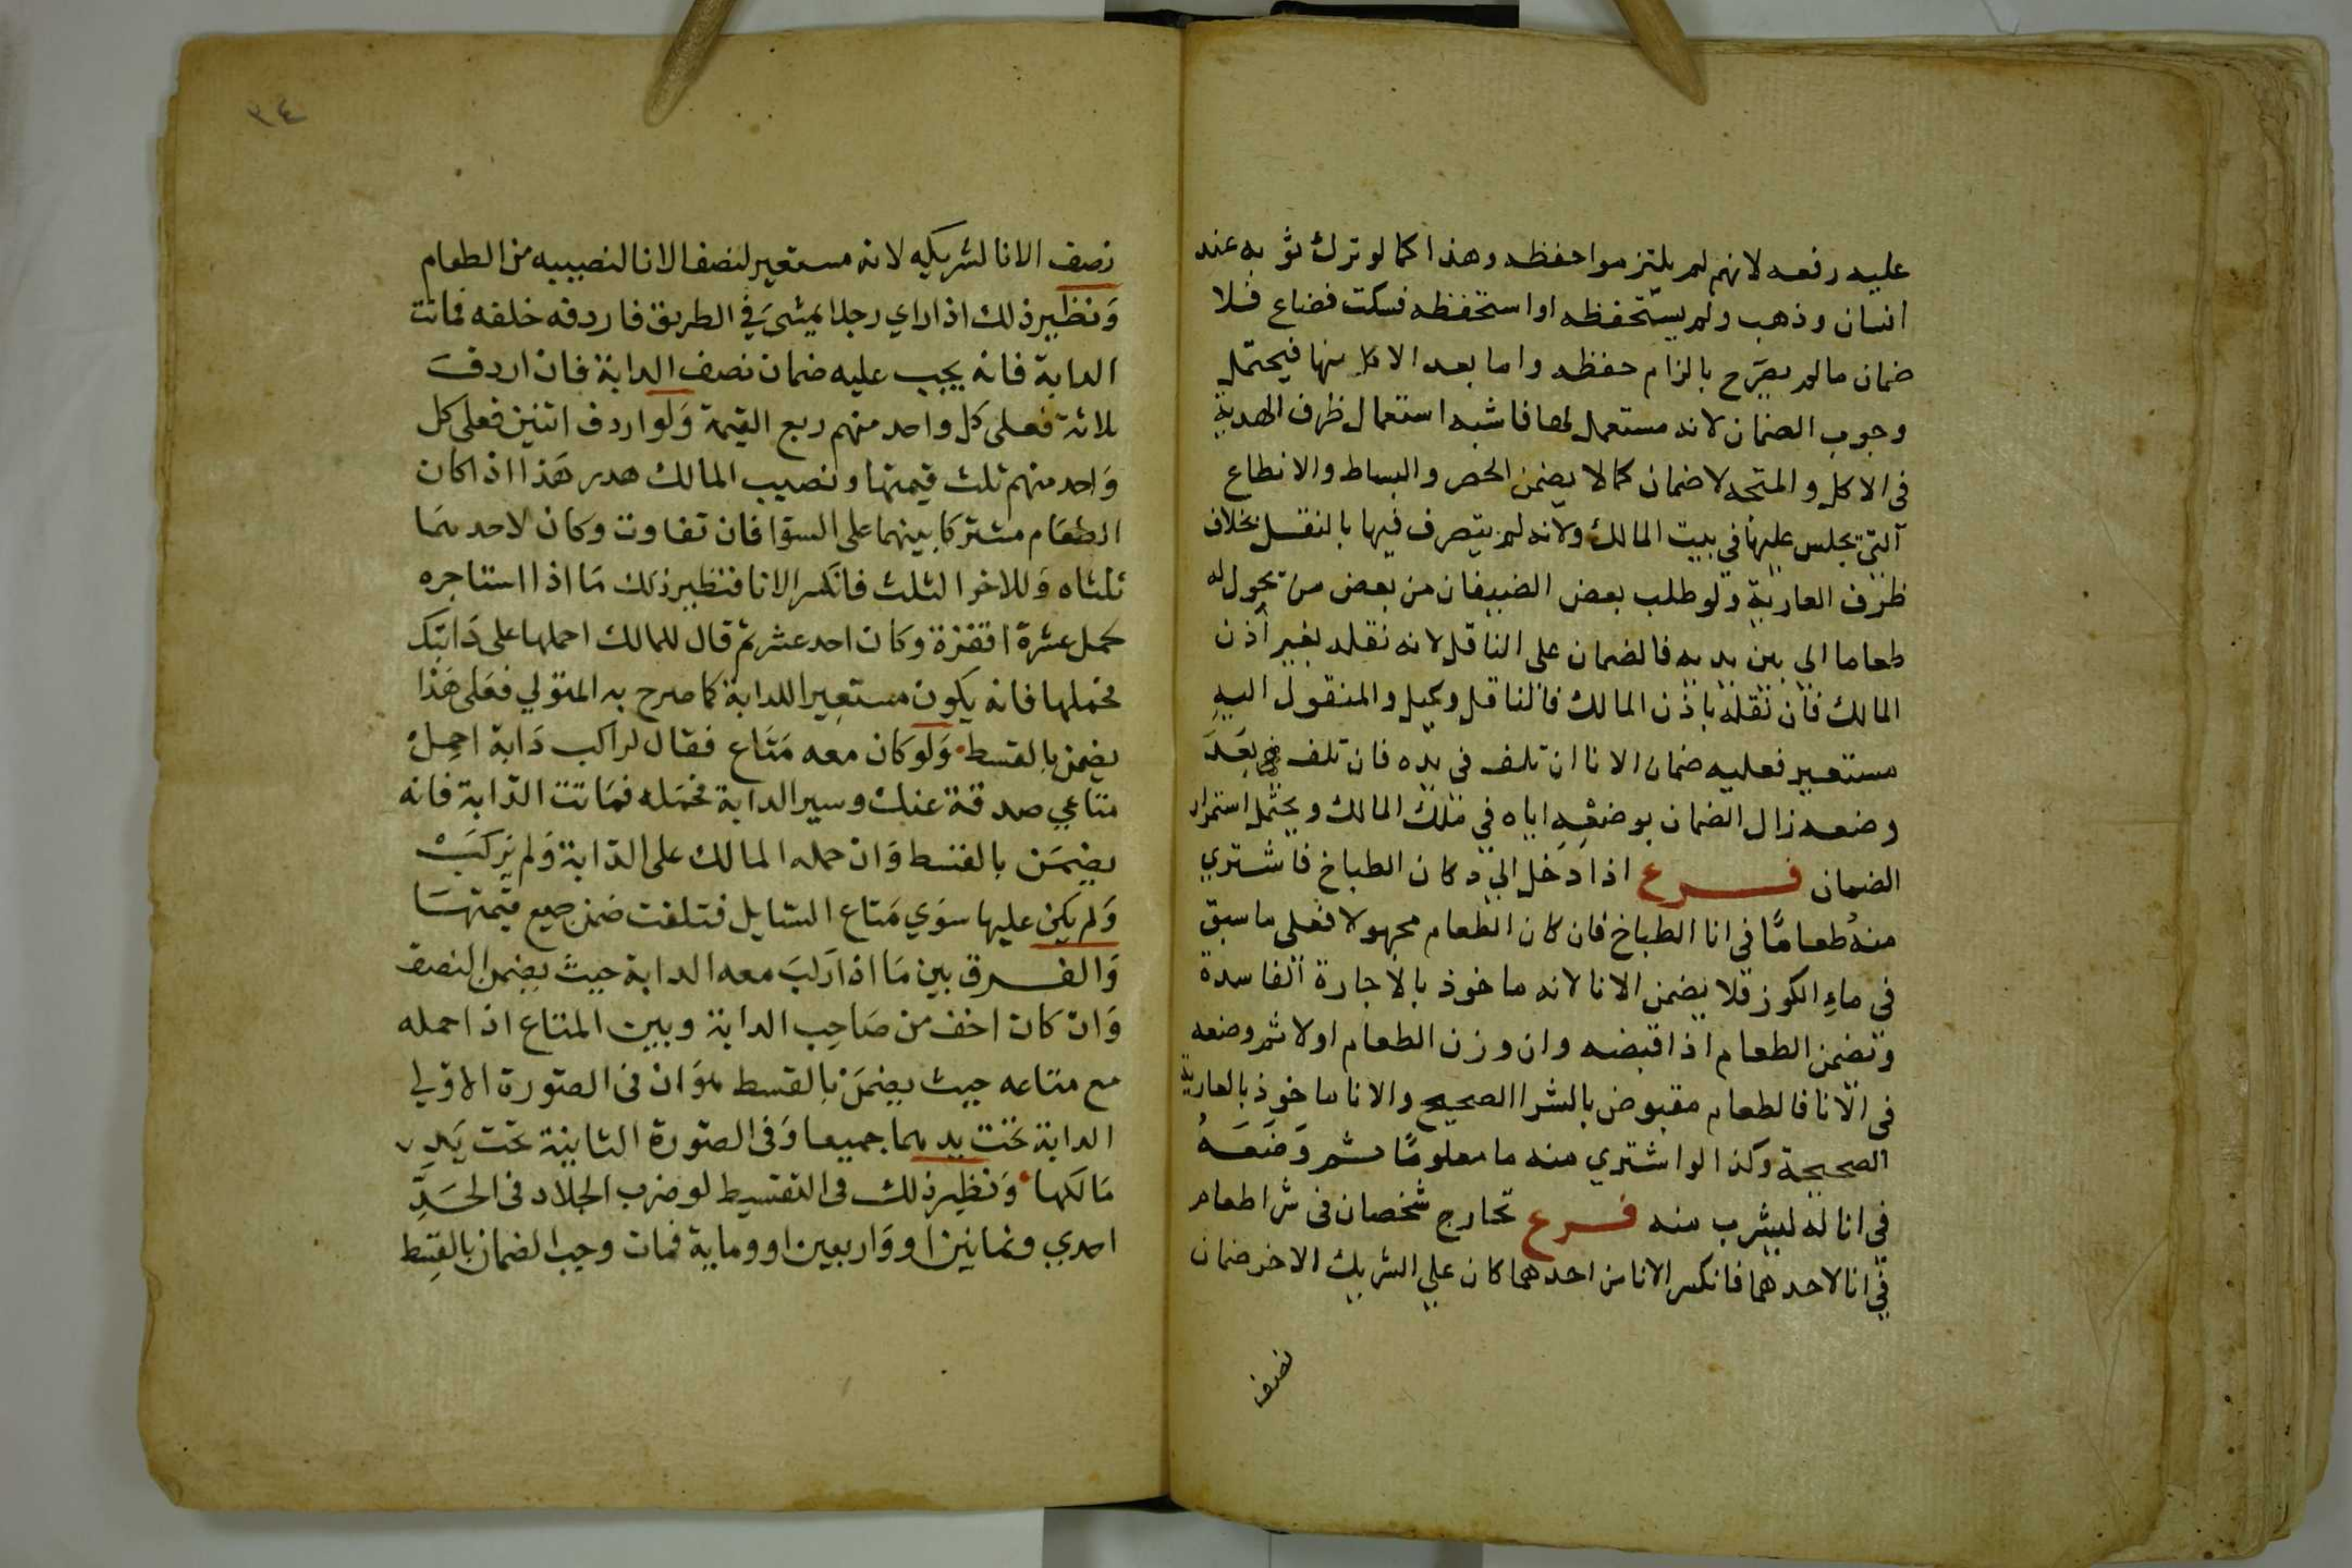 عليه رفعه لانهم لم يلتزموا حفظه وهذا كما لو ترك ثوبه عند
انسان وذهب ولم يستحفظه او استحفظه فسكت فضاع فلا
ضمان ما لم يصرح بالزام حفظه واما بعد الاكل منها فيحتمل
وجوب الضمان لانه مستعمل لها فاشبه استعمال ظرف الهدية
فى الاكل والمتجه لا ضمان كما لا يضمن الحصر والبساط والانطاع
التي يجلس عليها في بيت المالك ولانه لم يتصرف فيها بالنقل بخلاف
ظرف العارية ولو طلب بعض الضيفان من بعض من يحول له
طعاما الى بين يديه فالضمان على الناقل لانه نقله بغير اذن
المالك فان نقله باذن المالك فالناقل وكيل والمنقول اليه
مستعير فعليه ضمان الانا ان تلف فى يده فان تلف بعد
وضعه زال الضمان بوضعه اياه في ملك المالك ويحتمل استمرار
الضمان فرع اذا دخل الى دكان الطباخ فاشتري
منه طعاما فى انا الطباخ فان كان الطعام مجهولا فعلى ما سبق
في ماء الكوز فلا يضمن الانا لانه ماخوذ بالاجارة الفاسدة
وتضمن الطعام اذا قبضه وان وزن الطعام اولا ثم وضعه
فى الانا فالطعام مقبوض بالشرا الصحيح والانا ماخوذ بالعارية
الصحيحة وكذا لو اشتري منه ما معلوما ثم وضعه
في انا له ليشرب منه فرع تخارج شخصان فى شرا طعام
في انا لاحدهما فانكسر الانا من احدهما كان علي الشريك الاخر ضمان
نصف
٣٤
نصف الانا لشريكه لانه مستعير لنصف الانا لنصيبه من الطعام
ونظير ذلك اذا راي رجلا يمشى في الطريق فاردفه خلفه فماتت
الدابة فانه يجب عليه ضمان نصف الدابة فان اردف
ثلاثة فعلى كل واحد منهم ربع القيمة ولو اردف اثنين فعلى كل
واحد منهم ثلث قيمتها ونصيب المالك هدر هذا اذا كان
الطعام مشتركا بينهما على السوا فان تفاوت وكان لاحدهما
ثلثاه وللاخر الثلث فانكسر الانا فنظير ذلك ما اذا استاجره
لحمل عشرة اقفزة وكان احد عشر ثم قال للمالك احملها على دابتك
فحملها فانه يكون مستعيرا للدابة كما صرح به المتولي فعلى هذا
يضمن بالقسط ولو كان معه متاع فقال لراكب دابة احمل
متاعي صدقة عنك وسير الدابة فحمله فماتت الدابة فانه
يضمن بالقسط وان حمله المالك على الدابة ولم يركب
ولم يكن عليها سوي متاع السايل فتلفت ضمن جميع قيمتها
والفرق بين ما اذا ركب معه الدابة حيث يضمن النصف
وان كان اخف من صاحب الدابة وبين المتاع اذا حمله
مع متاعه حيث يضمن بالقسط هو ان فى الصورة الاولي
الدابة تحت يدهما جميعا وفى الصورة الثانية تحت يد
مالكها ونظير ذلك فى التقسيط لو ضرب الجلاد فى الحد
احدي وثمانين او واربعين او وماية فمات وجب الضمان بالقسط